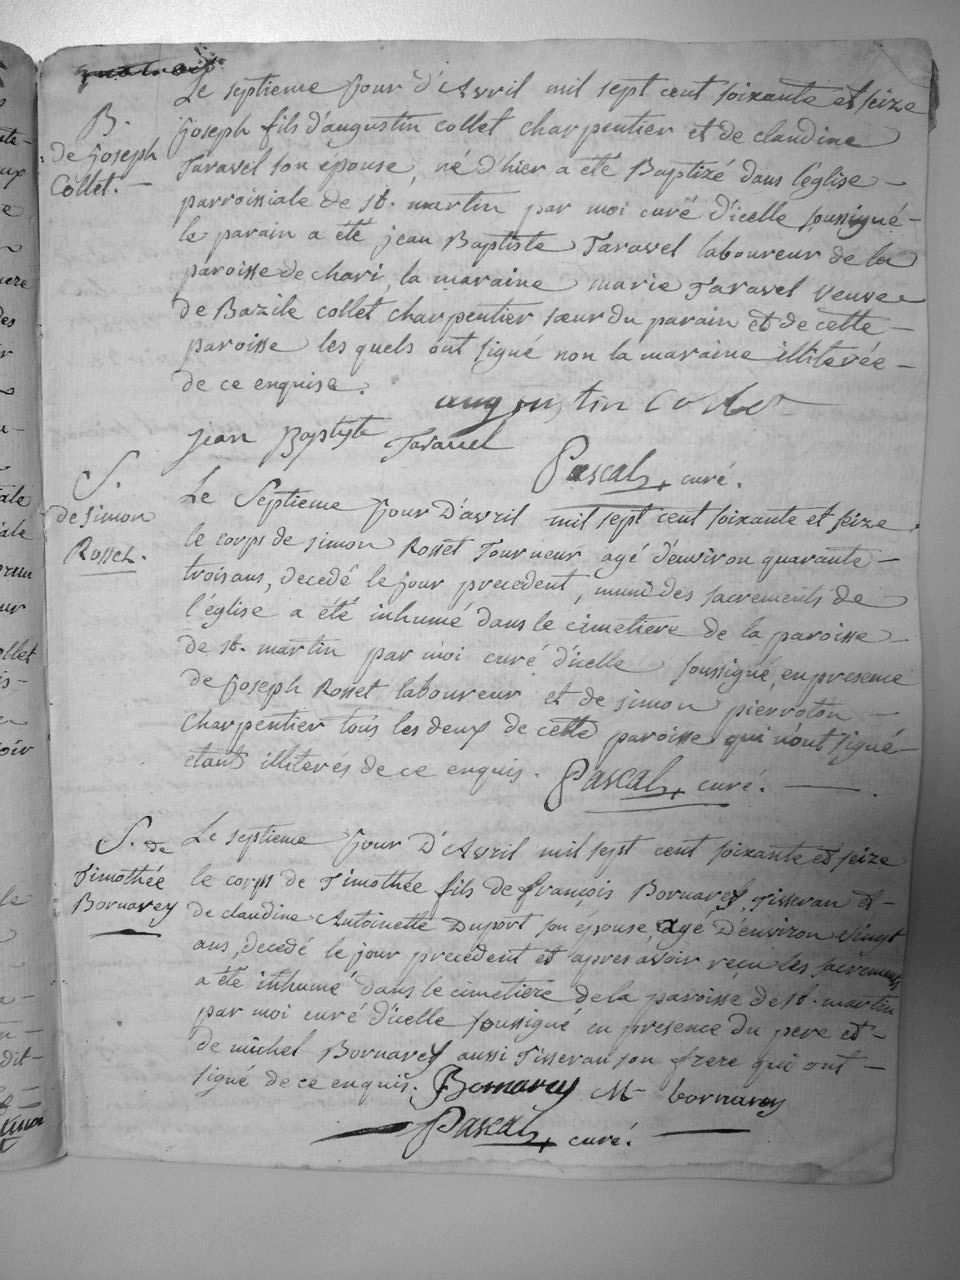 Le septieme jour d'Avril mil sept cent soixante et seize
B.
de joseph
Collet. —
joseph fils d'augustin collet charpentier et de claudine
Taravel son epouse, né d'hier a été Baptizé dans l'eglise —
parroissiale de st. martin par moi curé d'icelle soussigné —
le parain a été jean Baptiste Taravel laboureur de la
paroisse de chari, la maraine marie Taravel veuve
de Bazile collet charpentier sœur du parain et de cette —
paroisse les quels ont signé non la maraine illiterée —
de ce enquise.
augustin collet
jean Baptiste Taravel
Pascal curé.
S.
de simon
Rosset.
Le Septieme jour D'avril mil sept cent soixante et seize
le corps de simon Rosset Tourneur agé d'environ quarante —
trois ans, decedé le jour precedent, muni des sacrements de
l'église a été inhumé dans le cimetiere de la paroisse
de st. martin par moi curé d'icelle soussigné, en presence
de joseph Rosset laboureur et de simon pierroton —
charpentier tous les deux de cette paroisse qui n'ont signé —
etant illiterés de ce enquis. Pascal curé. —
S. de
Timothée
Bornarey
Le septieme jour D'Avril mil sept cent soixante et seize
le corps de Timothée fils de françois Bornarey Tisseran et —
de claudine Antoinette Duport son épouse, agé d'environ vingt
ans, decedé le jour precedent et apres avoir reçu les sacrements
a été inhumé dans le cimetiere de la paroisse de st. martin
par moi curé d'icelle soussigné en presence du pere et —
de michel Bornarey aussi Tisseran son frere qui ont —
signé de ce enquis. Bornarey M bornarey
Pascal curé.